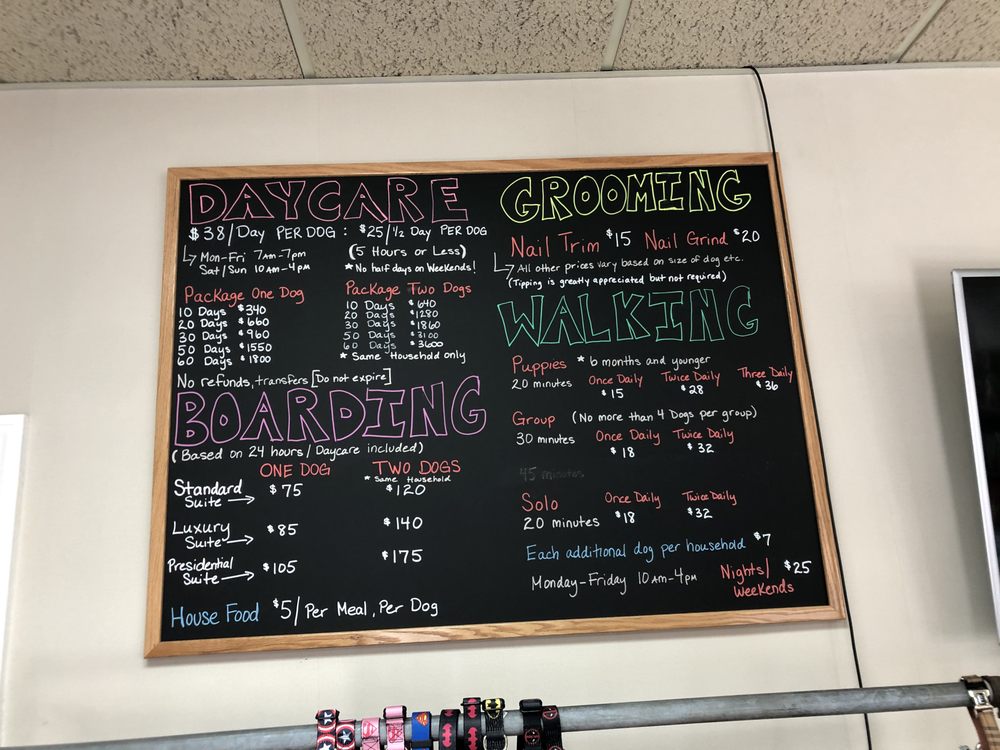 DAYCARE
$38/Day PER DOG : $25/½ Day PER DOG
Mon-Fri 7AM-7pm
Sat/Sun 10AM-4pm
(5 Hours or Less)
*No half days on Weekends!
Package One Dog
10 Days $340
20 Days $660
30 Days $960
50 Days $1550
60 Days $1800
Package Two Dogs
10 Days $640
20 Days $1280
30 Days $1860
50 Days $3100
60 Days $3600
* Same Household only
No refunds, transfers [Do not expire]
BOARDING
(Based on 24 hours/Daycare included)
ONE DOG TWO DOGS
* Same Household
Standard Suite → $75 $120
Luxury Suite → $85 $140
Presidential Suite → $105 $175
House Food $5/Per Meal, Per Dog
GROOMING
Nail Trim $15 Nail Grind $20
All other prices vary based on size of dog etc.
(Tipping is greatly appreciated but not required)
WALKING
Puppies * 6 months and younger
20 minutes Once Daily Twice Daily Three Daily
$15 $28 $36
Group (No more than 4 Dogs per group)
30 minutes Once Daily Twice Daily
$18 $32
45 minutes
Solo Once Daily Twice Daily
20 minutes $18 $32
Each additional dog per household $7
Monday-Friday 10AM-4pm
Nights/ $25
Weekends